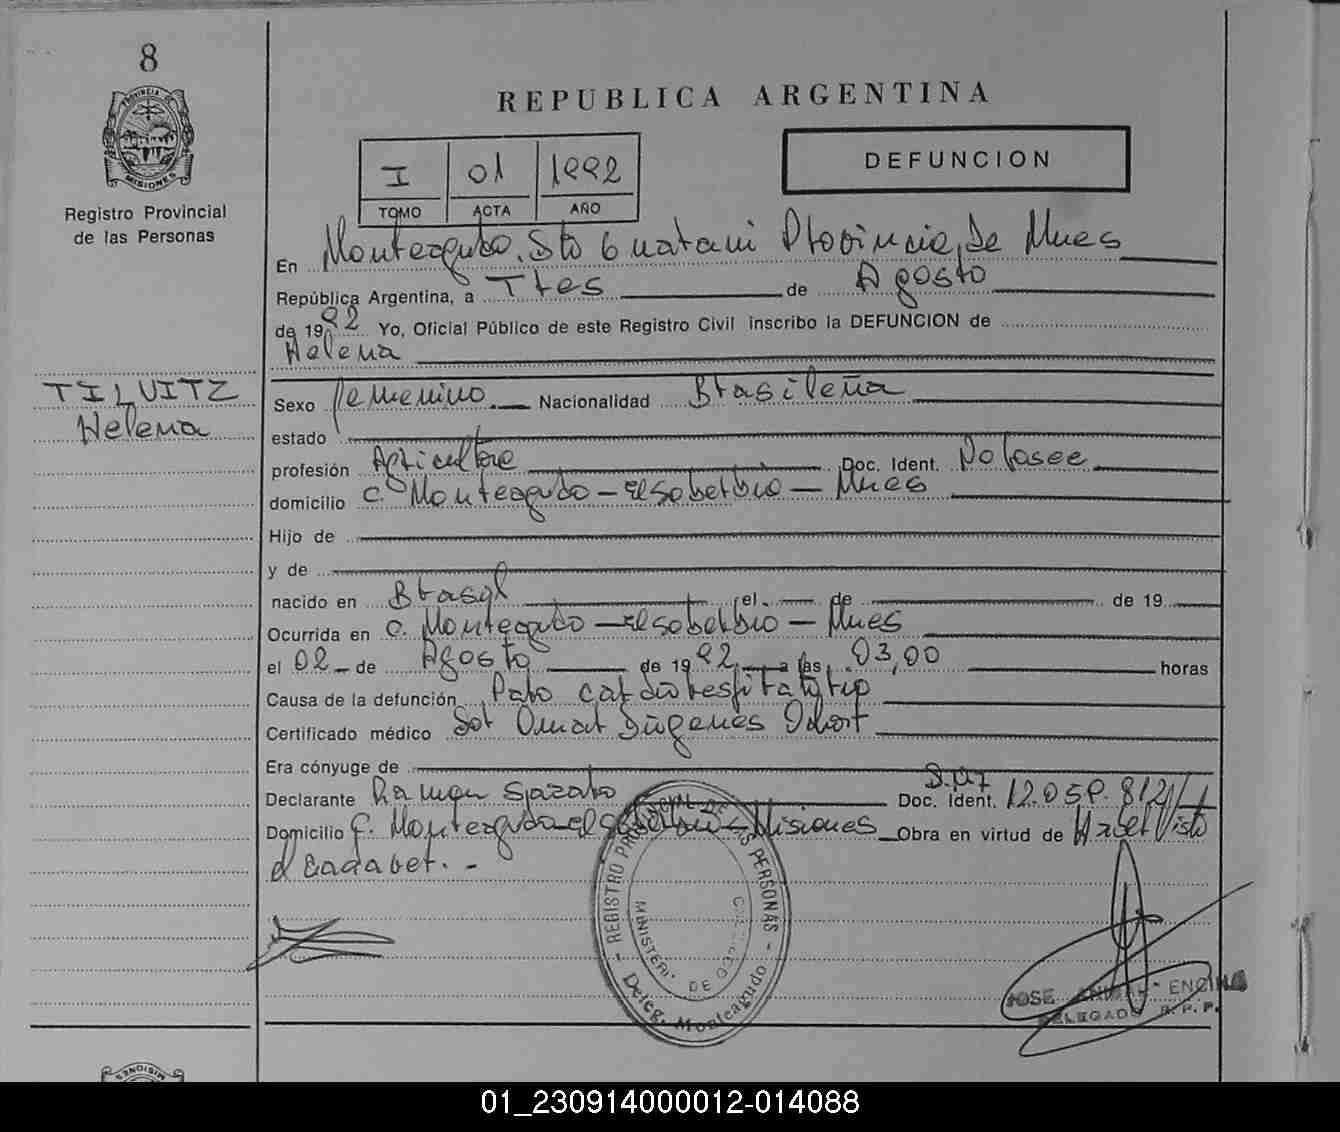 8
PROVINCIA DE
MISIONES
Registro Provincial
de las Personas
REPUBLICA ARGENTINA
I 01 1992
TOMO ACTA AÑO
DEFUNCION
En Monteagudo, Gto Guarani Provincia, de Mnes
República Argentina, a Tres de Agosto
de 1992 Yo, Oficial Público de este Registro Civil inscribo la DEFUNCION de
Helena
TILUITZ
Helena
Sexo femenino. Nacionalidad Brasileña
estado
profesión Agricultora Doc. Ident. No Posee
domicilio C. Monteagudo - El soberbio - Mnes
Hijo de
y de
nacido en Brasil el de de 19
Ocurrida en C. Monteagudo - El soberbio - Mnes
el 02 de Agosto de 1992 a las 03,00 horas
Causa de la defunción Paro cardiorespiratorio
Certificado médico Omar
Era cónyuge de
Declarante Ramon Doc. Ident. D.N.I
Domicilio C. Monteagudo - El soberbio - Misiones Obra en virtud de Haber Visto
el Cadaver. -
REGISTRO PROVINCIAL DE LAS PERSONAS
MINISTERI DE GOB
Deleg. Monteagudo
JOSE ANIBAL ENCINA
DELEGADO R. P. P.
MISIONES
01_230914000012-014088